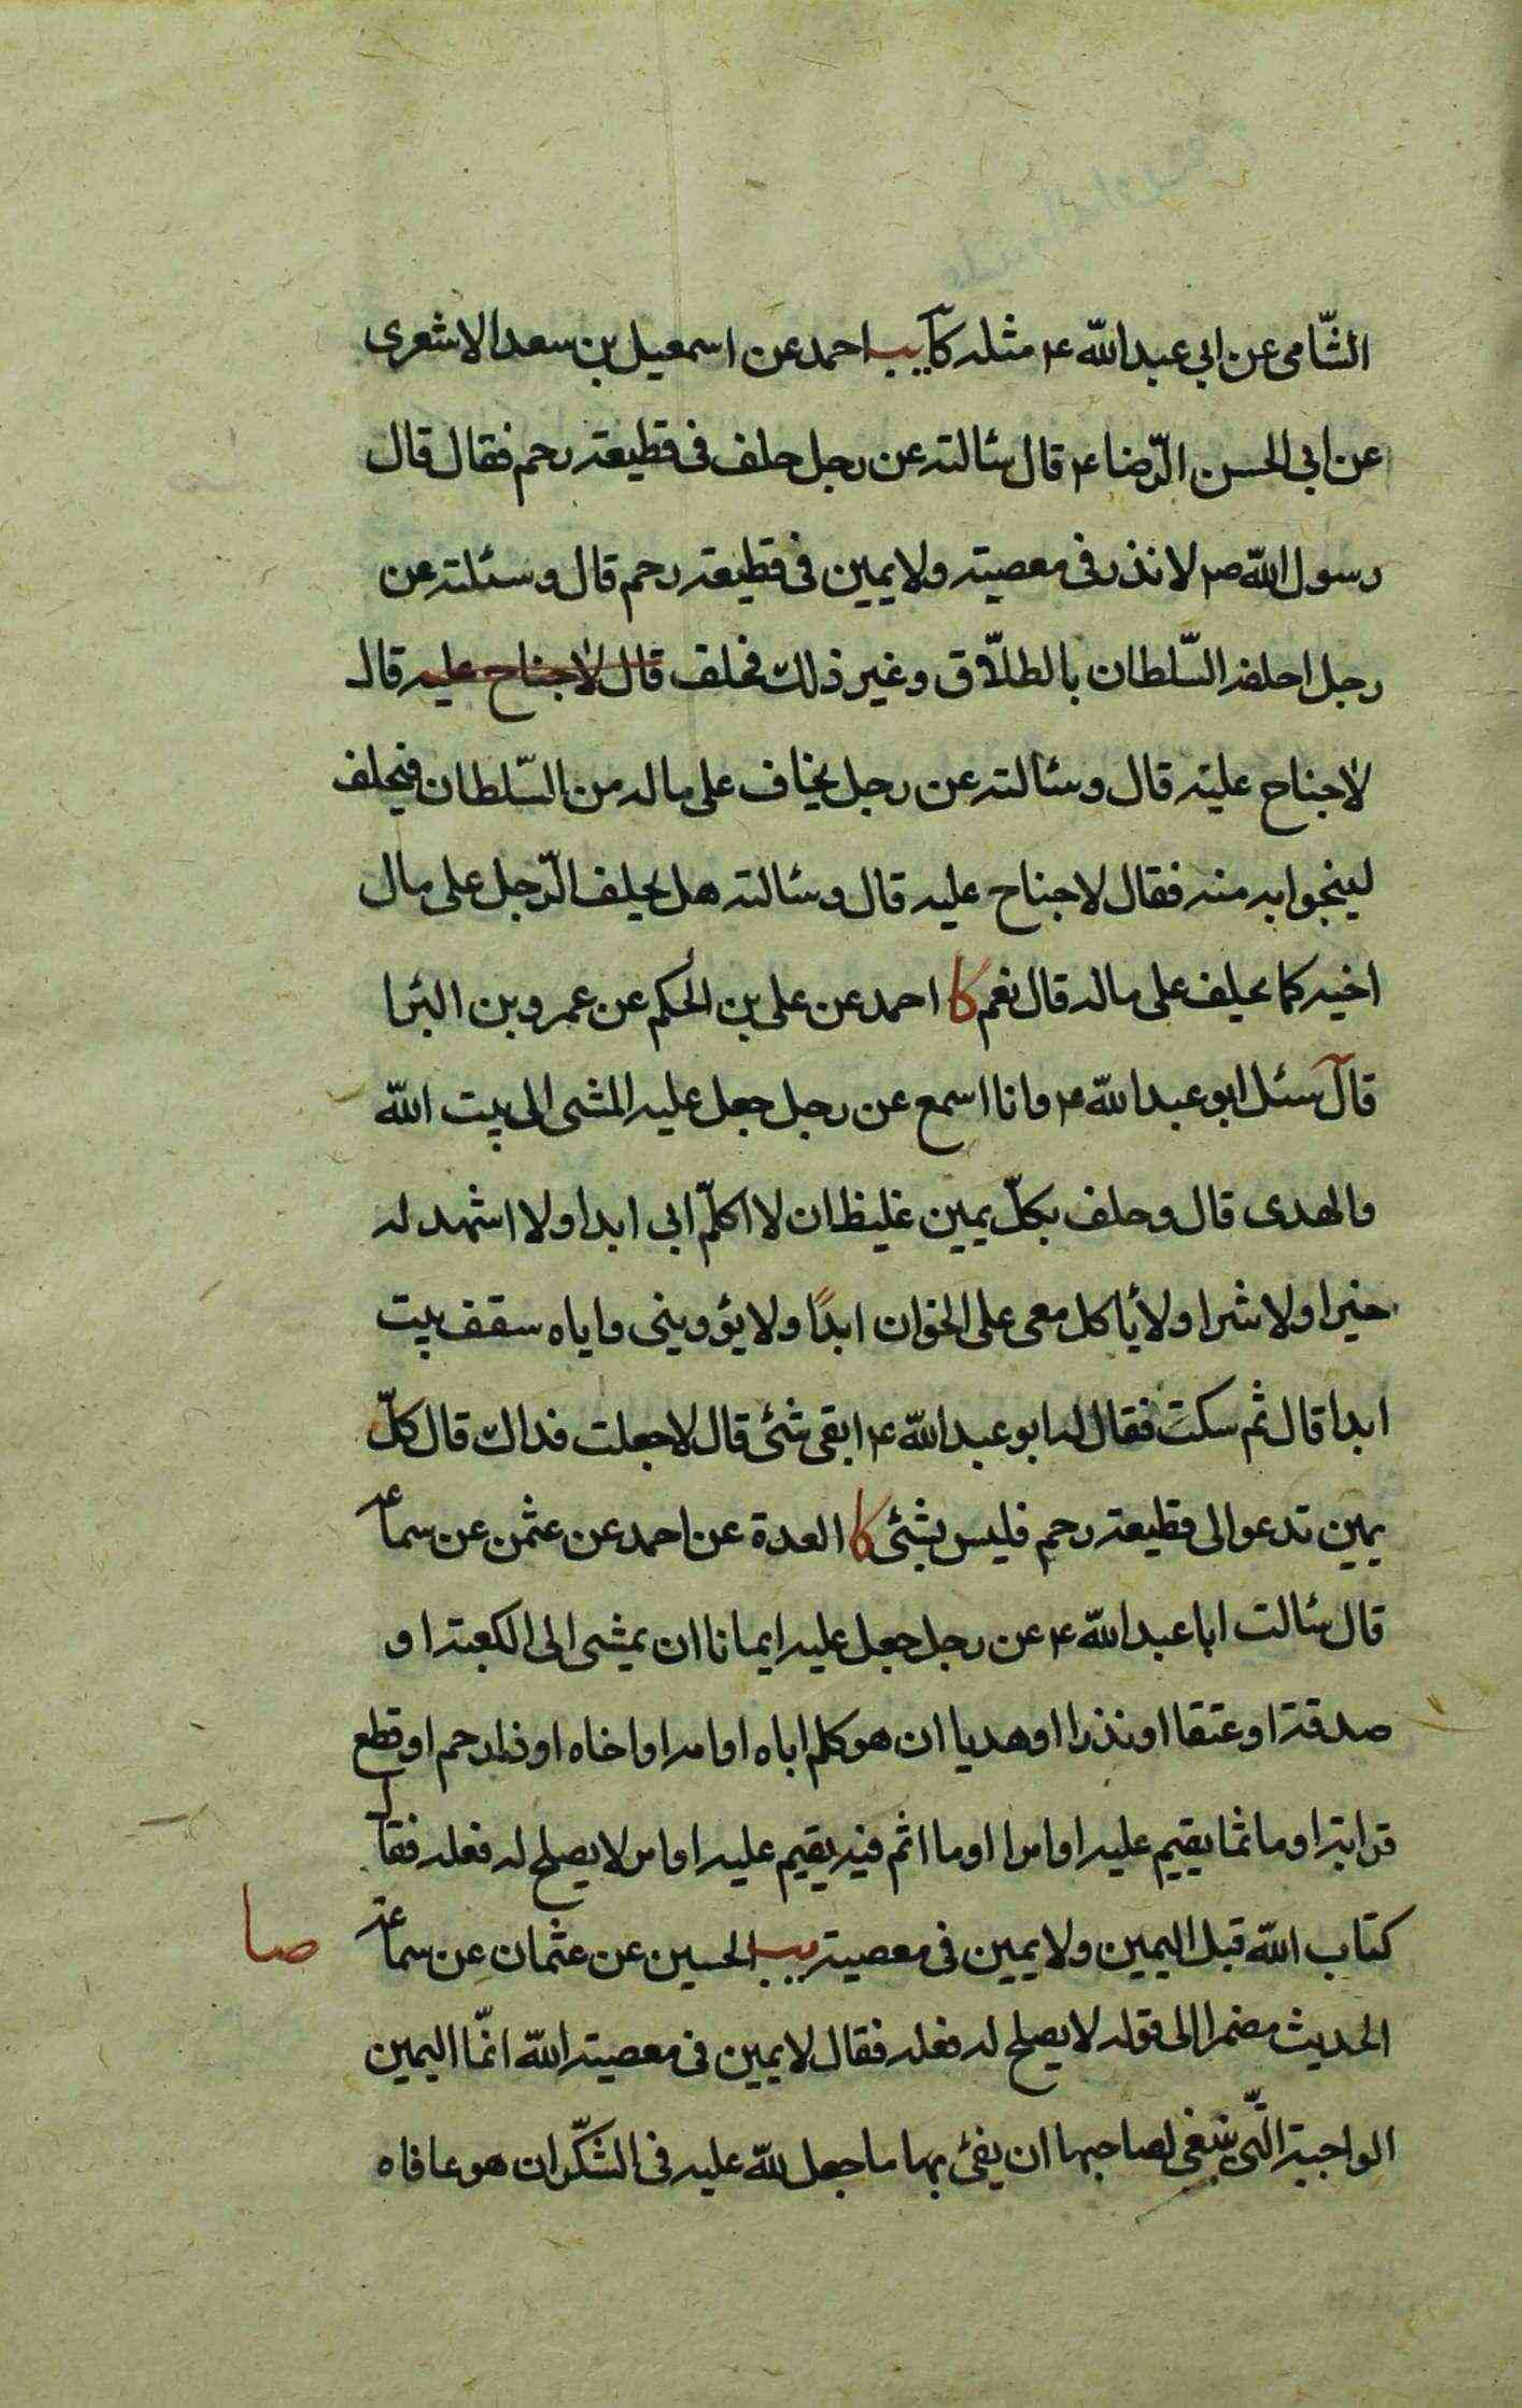 الشّامى عن ابى عبد الله ع مثله كا يب احمد عن اسمعيل بن سعد الاشعرى
عن ابى الحسن الرّضا ع قال سئالته عن رجل حلف فى قطيعة رحم فقال قال
رسول الله ص لا نذر فى معصية ولا يمين فى قطيعة رحم قال وسئلته عن
رجل احلفه السّلطان بالطلّاق وغير ذلك فحلف قال لا جناح عليه قال
لا جناح عليه قال وسئالته عن رجل يخاف على ماله من السّلطان فيحلف
لينجوا به منه فقال لا جناح عليه قال وسئالته هل يحلف الرّجل على مال
اخيه كما يحلف على ماله قال نعم كا احمد عن على بن الحكم عن عمرو بن البرا
قال سئل ابو عبد الله ع وانا اسمع عن رجل جعل عليه المشى الى بيت الله
والهدى قال وحلف بكلّ يمين غليظ ان لا اكلّم ابى ابدا ولا اشهد له
خيرا ولا شرا ولا يأكل معى على الخوان ابدًا ولا يؤوينى واياه سقف بيت
ابدا قال ثم سكت فقال له ابو عبد الله ع ابقى شئ قال لا جعلت فداك قال كلّ
يمين تدعو الى قطيعة رحم فليس بشئ كا العدة عن احمد عن عثمن عن سماعة
قال سئالت ابا عبد الله ع عن رجل جعل عليه ايمانا ان يمشى الى الكعبة او
صدقة او عتقا او نذرا او هديا ان هو كلم اباه او امه او اخاه او ذا رحم او قطع
قرابة او ماثما يقيم عليه او امرا او ما اثم فيه يقيم عليه او امر لا يصلح له فعله فقال
كتاب الله قبل اليمين ولا يمين فى معصية يب الحسين عن عثمان عن سماعة
صا
الحديث مضمرا الى قوله لا يصلح له فعله فقال لا يمين فى معصية الله انّما اليمين
الواجبة الّتى ينبغى لصاحبها ان يفئ بها ما جعل لله عليه فى الشكر ان هو عافاه